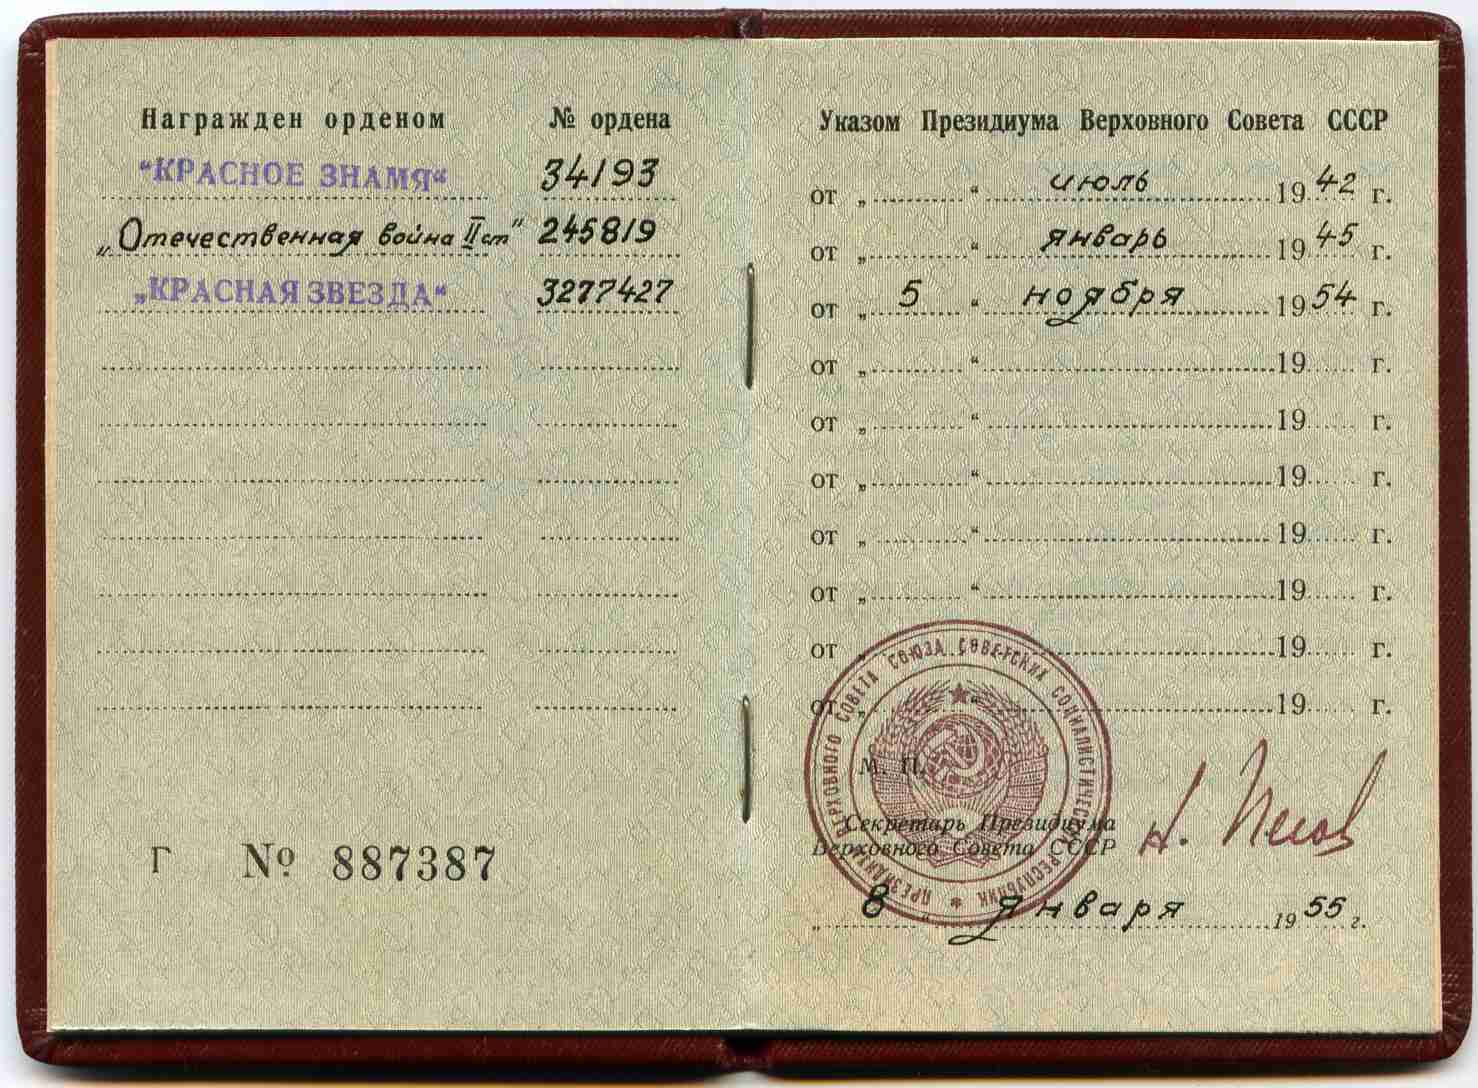 Награжден орденом № ордена
"КРАСНОЕ ЗНАМЯ" 34193
„Отечественная война II ст" 245819
„КРАСНАЯ ЗВЕЗДА" 3277427
Г № 887387
Указом Президиума Верховного Совета СССР
от „ “ июль 19 42 г.
от „ “ январь 19 45 г.
от „ 5 “ ноября 19 54 г.
от „ “ 19 г.
от „ “ 19 г.
от „ “ 19 г.
от „ “ 19 г.
от „ “ 19 г.
от „ “ 19 г.
от „ “ 19 г.
ПРЕЗИДИУМ ВЕРХОВНОГО СОВЕТА СОЮЗА СОВЕТСКИХ СОЦИАЛИСТИЧЕСКИХ РЕСПУБЛИК *
М. П.
Секретарь Президиума
Верховного Совета СССР
Н. Пегов
„ 8 “ января 19 55 г.